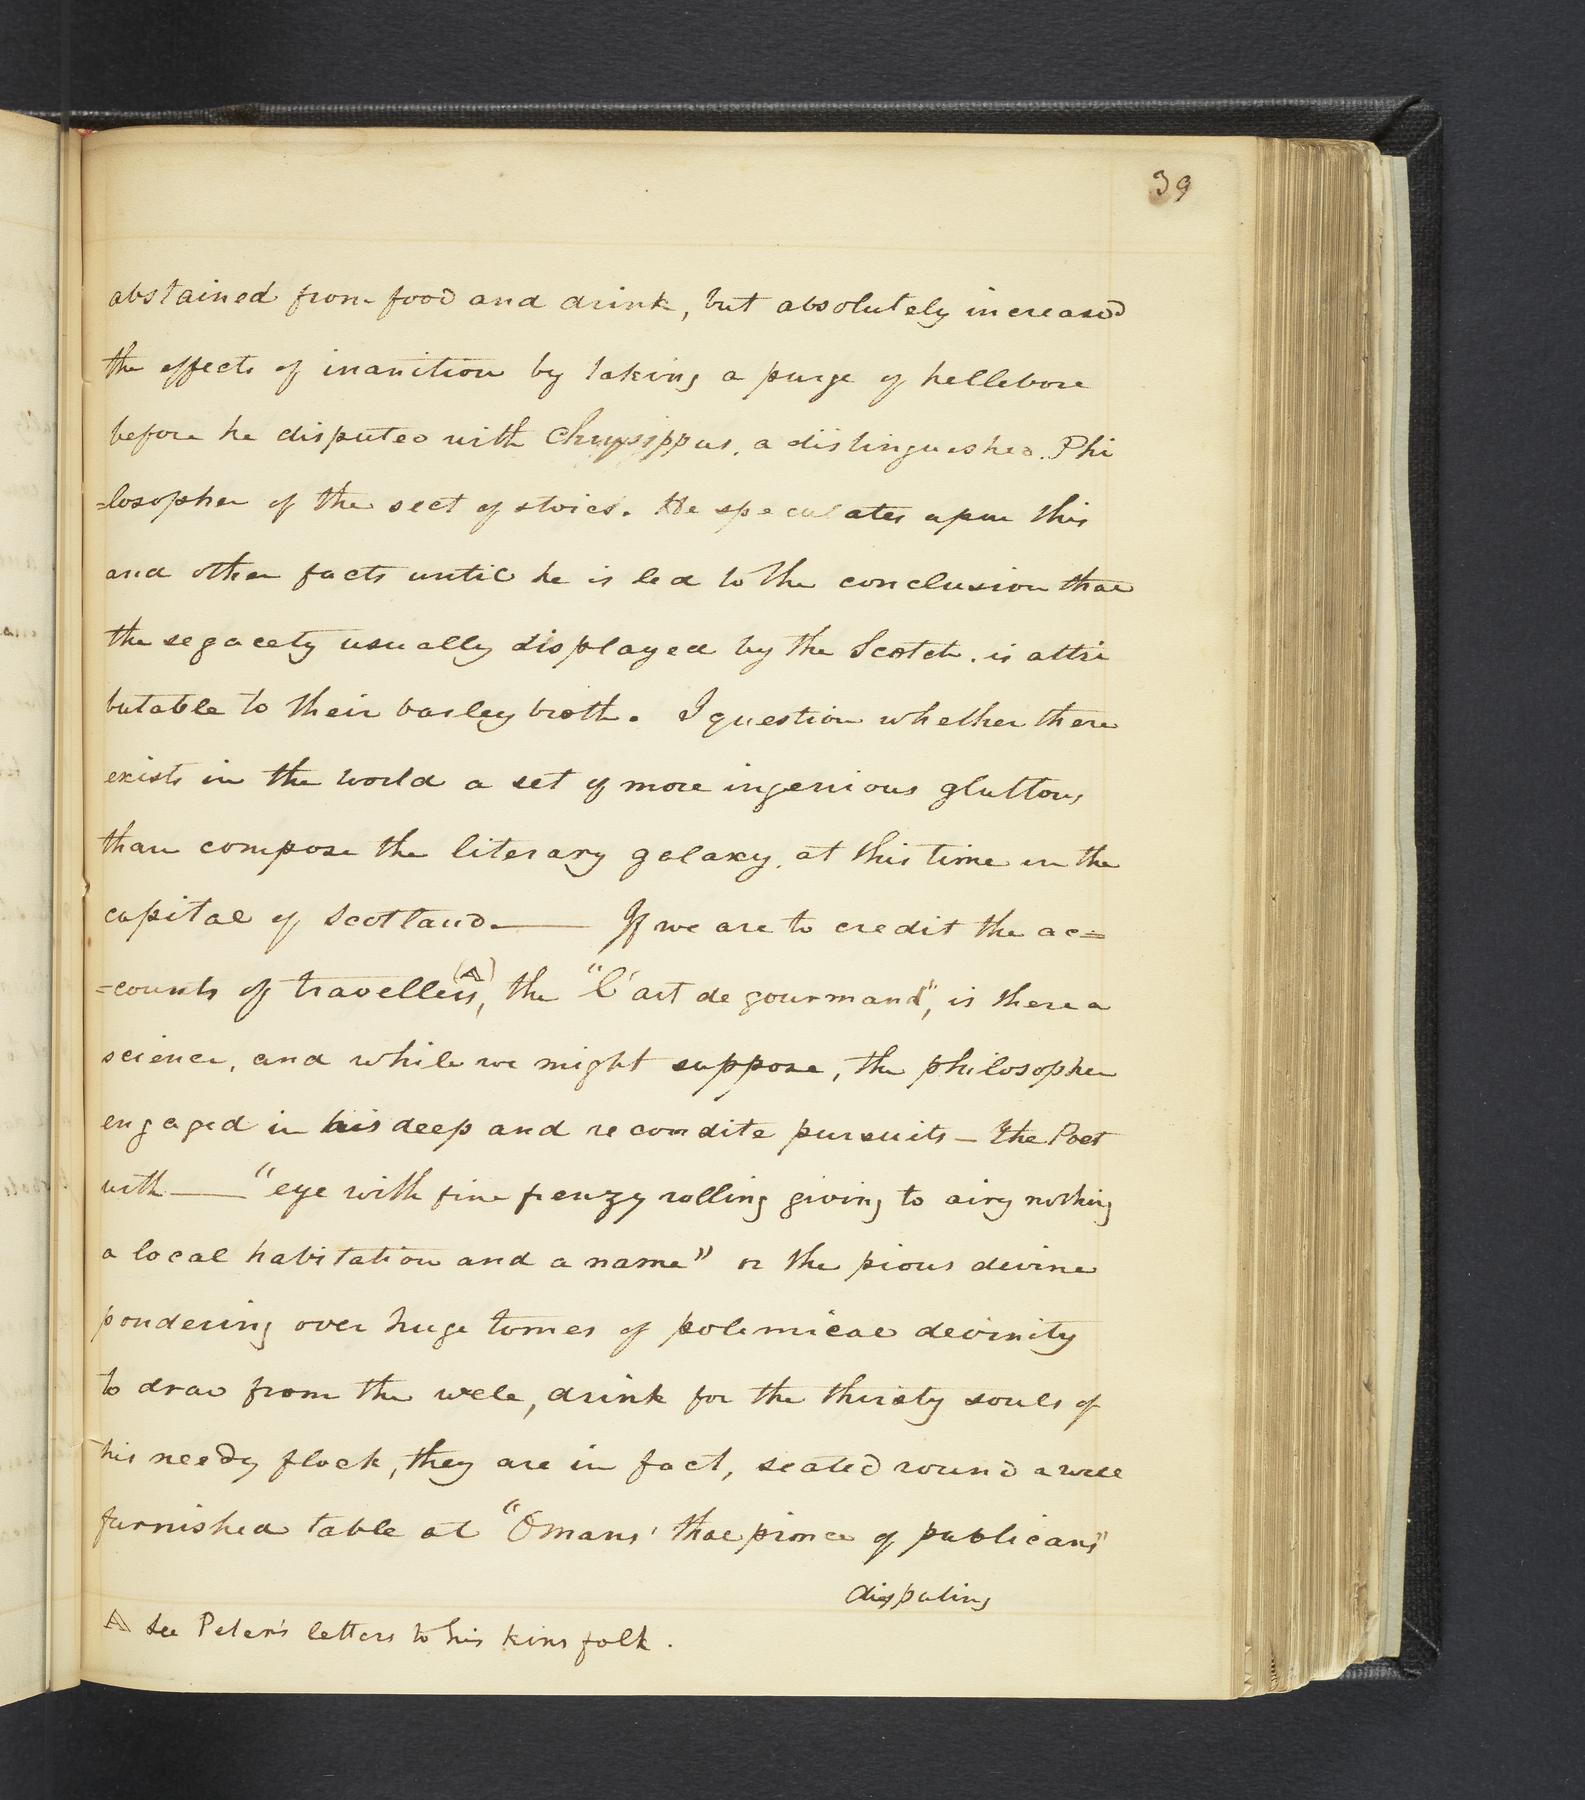 39
abstained from food and drink, but absolutely increased
the effects of inanition by taking a purge of hellebore
before he disputed with Chrysippus, a distinguished Phi
=losopher of the sect of stoics. He speculates upon this
and other facts until he is led to the conclusion that
the segacety usually displayed by the Scotch. is attri
butable to their barley broth. I question whether there
exists in the world a set of more ingenious gluttons
than compose the literary galaxy, at this time in the
capital of Scotland.—— If we are to credit the ac=
=counts of travellers,(A) the "l'art de gourmand", is there a
science, and while we might suppose, the philosopher
engaged in his deep and recondite pursuits — the Poet
with —— "eye with fine frenzy rolling giving to airy nothing
a local habitation and a name" or the pious devine
pondering over huge tomes of polemical devinity
to draw from the well, drink for the thirsty souls of
his needy flock, they are in fact, seated round a well
furnished table at "Omans' that prince of publicans"
disputing
A See Peter's letters to his kinsfolk.